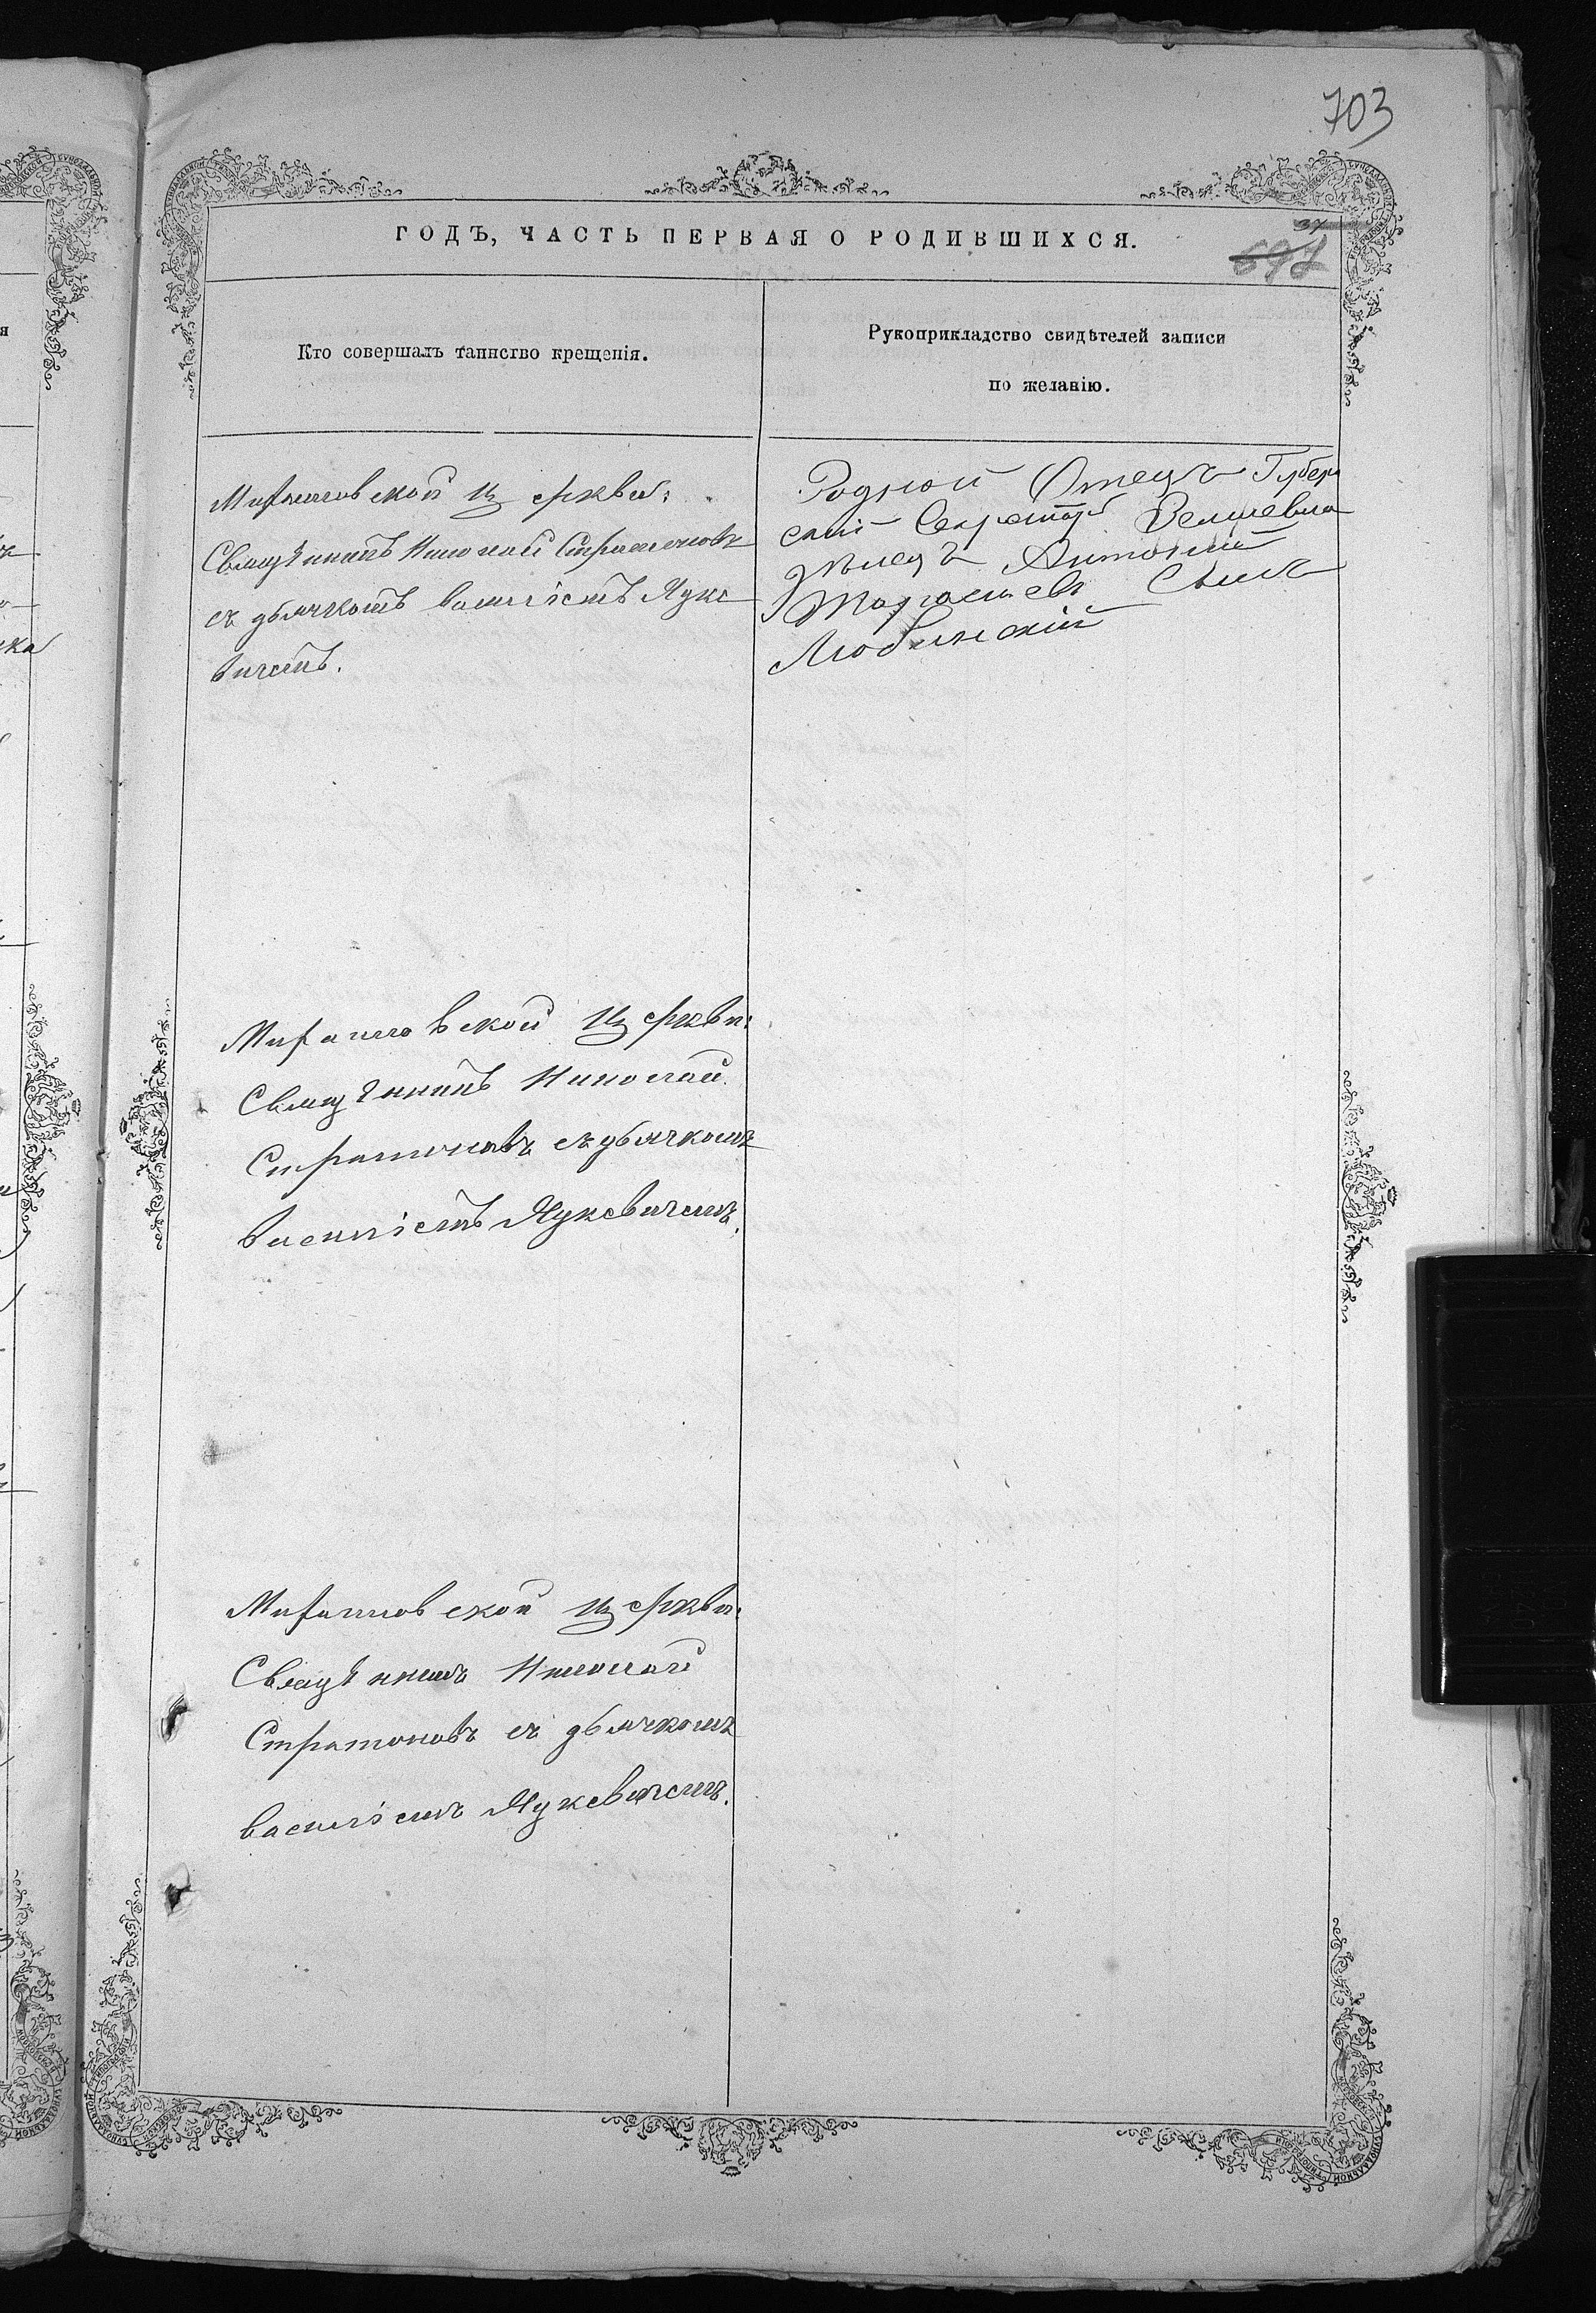 703
ГОДЪ, ЧАСТЬ ПЕРВАЯ О РОДИВШИХСЯ.
697
Кто совершалъ таинство крещенія.
Рукоприкладство свидѣтелей записи
по желанію.
церкви:
Священникъ Николай Стратоновъ
съ дьячкомъ Василіемъ Луке
вичемъ.
Родной Отецъ Губер
скій Секретарь
Антоній
Тарасіевъ Сынъ
Любинскій
церкви:
Священникъ Николай
Стратоновъ съ дьячкомъ
Василіемъ Лукевичемъ.
церкви:
Священникъ Николай
Стратоновъ съ дьячкомъ
Василіемъ Лукевичемъ.